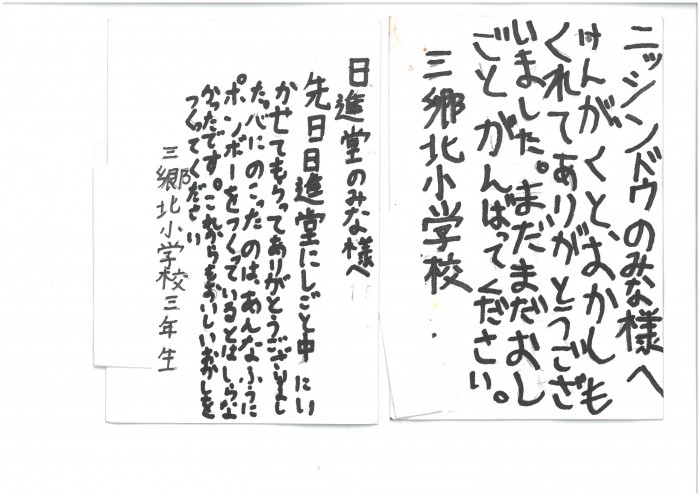 ニッシンドウのみな様へ
けんがくと、おかしも
くれてありがとうござ
いました。まだまだおし
ごとがんばってください。
三郷北小学校
日進堂のみな様へ
先日日進堂にしごと中にい
かせてもらってありがとうございまし
た。心にのこったのは、あんなふうに
ポンポーをつくっているとはしらな
かったです。これからもおいしいおかしを
つくってください
三郷北小学校三年生